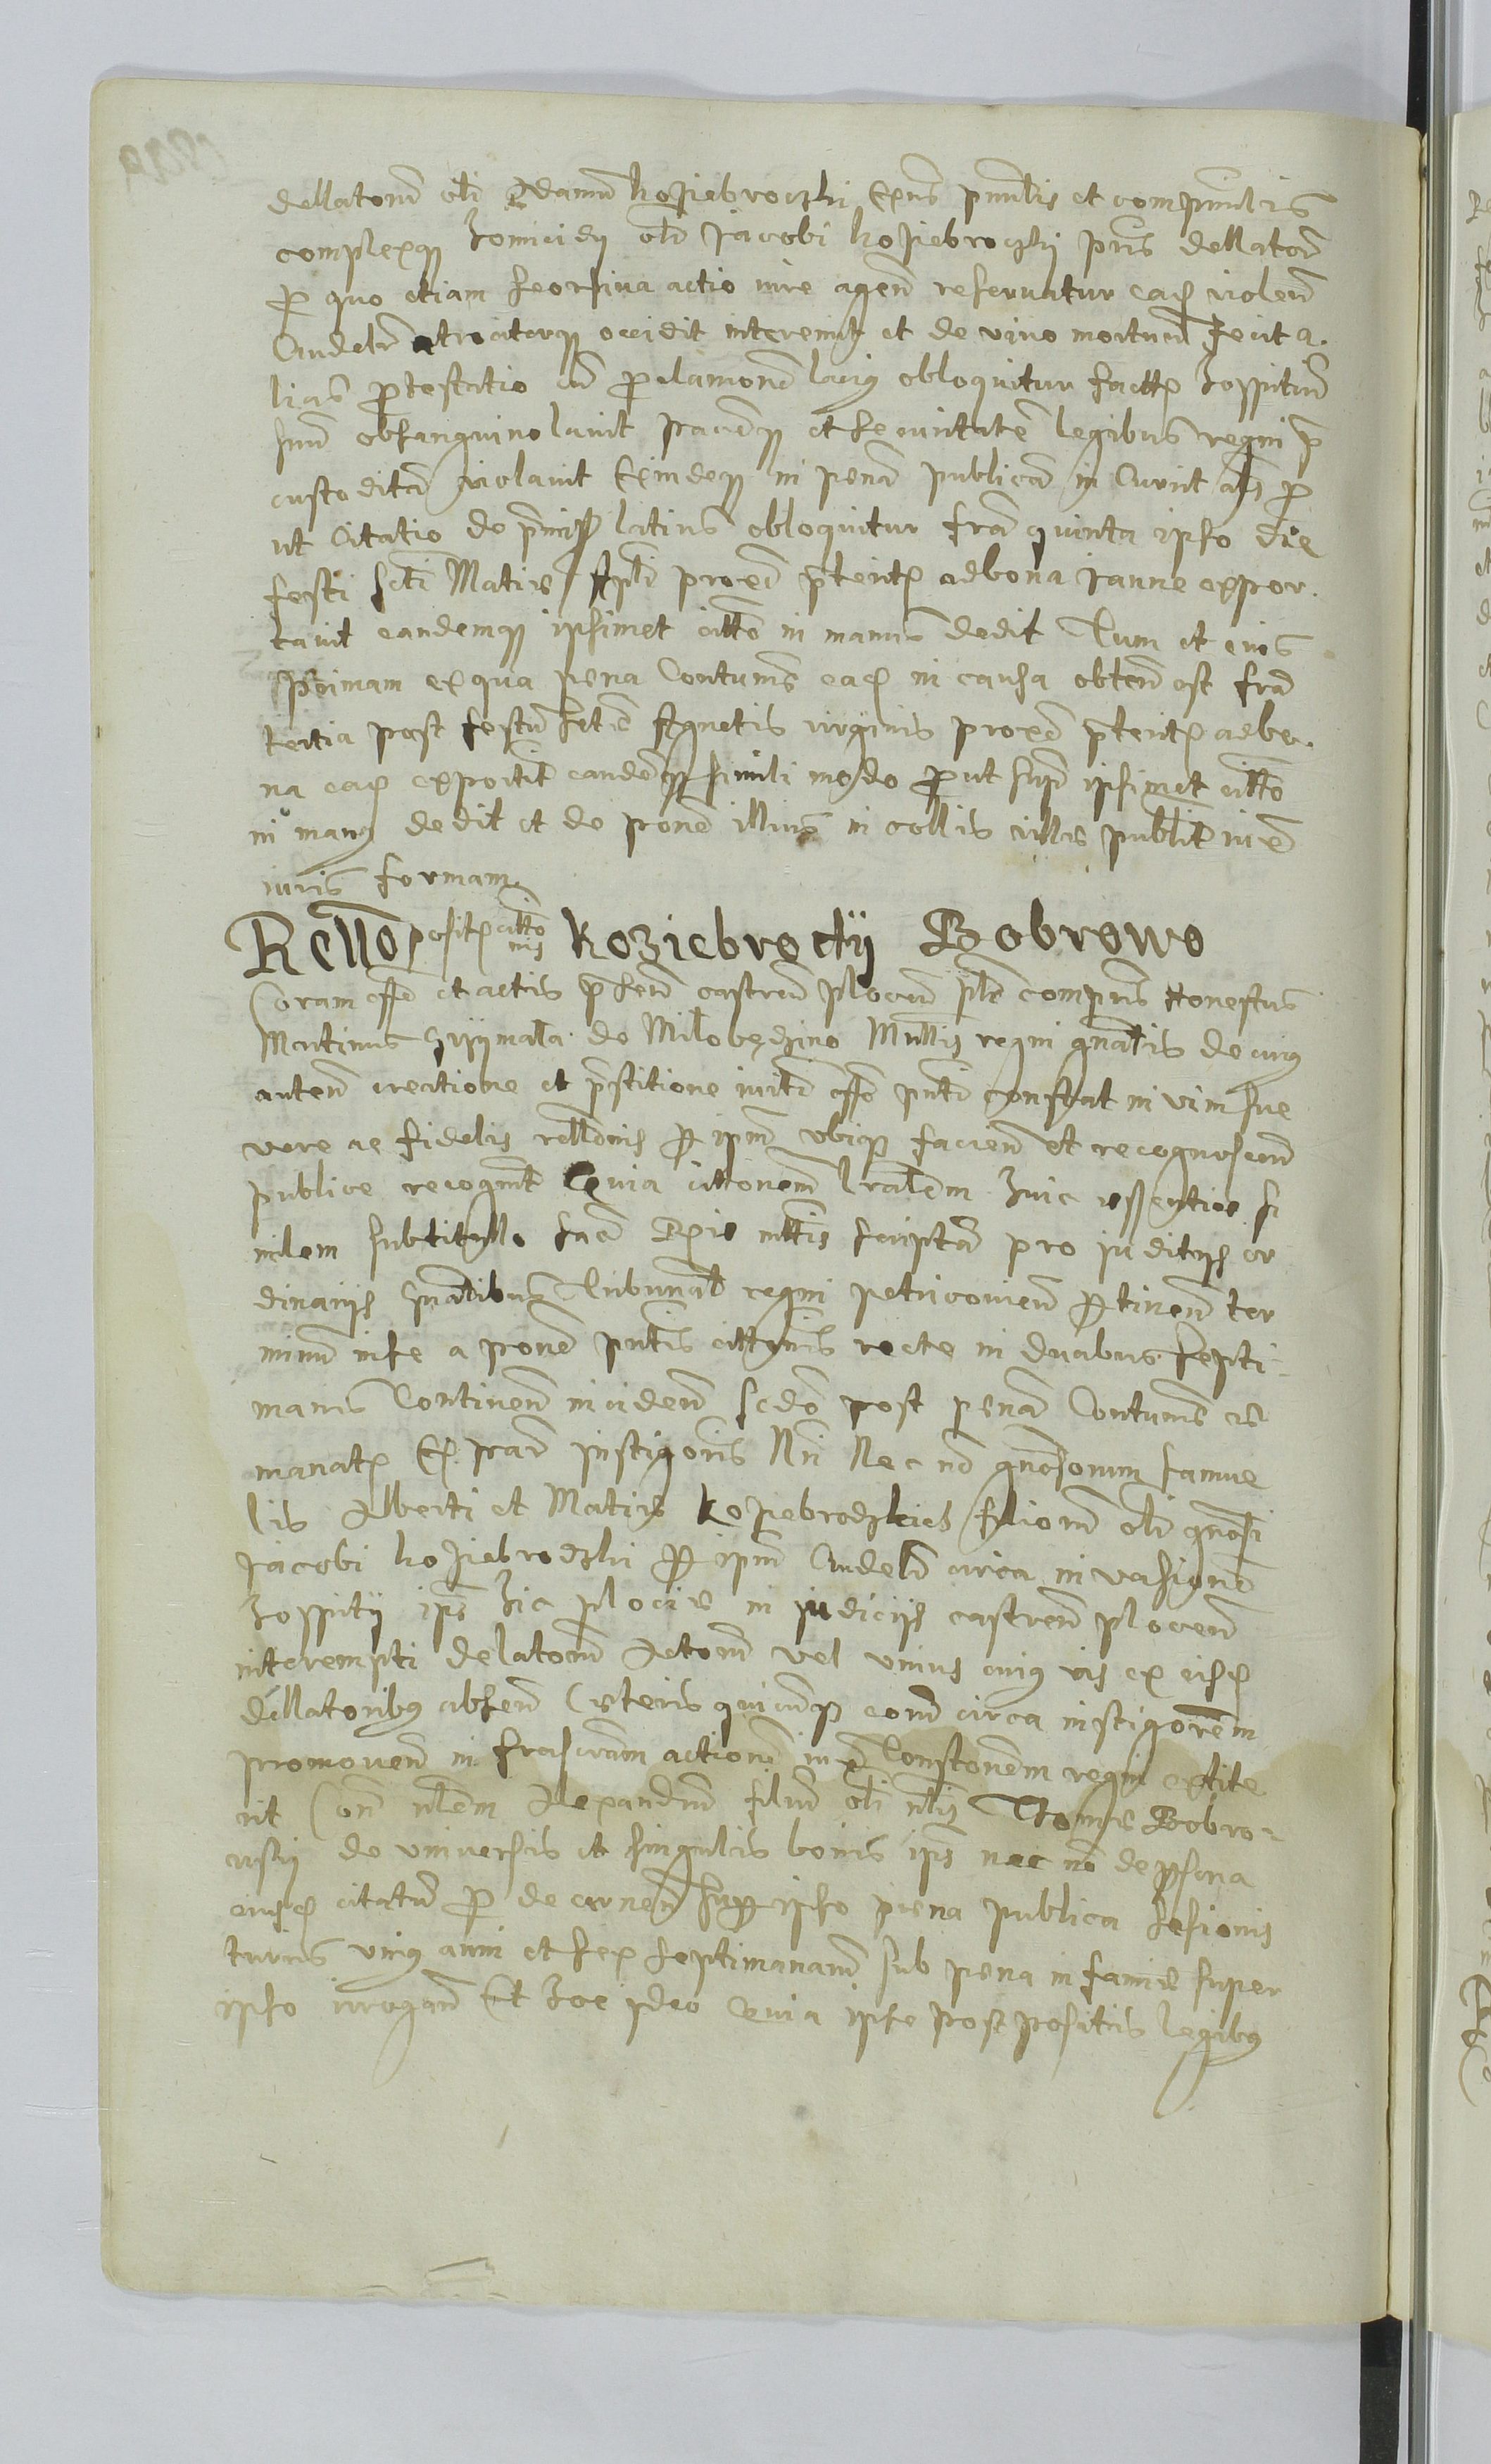 dellatorum oli Adamum koziebroczki ptris et
complexq homicidy oli Jacobi koziebroczki ptris dellatorum
p quo etiam seorsiua actio iure agen reseruatur eaq violen
Crudelr atrociterq occidit interemit et de viuo mortuum fecit a.
lias protestatio cu proclamone lacig obloquitur factq hospitium
suum obsanguinolauit pacemq et securitatem legibus regni p
custoditam violauit Eundemq in penam publicam incurrit als p
ut Citatio de pmiss latius obloquitur fria quinta ipso die
festi scti Matis Apli proxe pteritq ad bona Janne expor.
tauit eandemq ipsimet citto in manus dedit Tum et eius
primam ex qua pena Contums eaq in causa obten est fria
tertia post festum scte Agnetis virginis proxe pteritq ad bo.
na eaq exportit eandemq simili modo prout supr ipsimet citto
in mang dedit et de pone illius in collis villis publit iuxe
iuris formam
Rello positq citto nis Koziebroctij Bobrowo
Coram offo et actis psen castren plocen psr compns Honestus
Martinus Grzymala de Milobędzino Mnltis regni gnalis de cuig
auten creatione et pstitione iurti offo pnti constat in vim sue
vere ac fidelis rellonis p ipm vbiq facien et recognoscen
publice recognt Quia cittonem lralem huic essentiae si
milem sub titullo Sac Rgie mttis scriptam pro juditijs or
dinarijs gnalibus Tribunal regni petricouien ptinen ter
minum in se a pone pntis cittonis recte in duabus septi
manis Continen inciden scdo post penam Contums
manatq Ex par instigoris Nri Nec no gnosorum Samue
lis Alberti et Matis koziebrodzkich filiorum oli gnosi
Jacobi koziebrodzki p ipm Crudelr circa inuasionem
hospitij ips hic plocis in judicijs castren plocen
interempti delatorum Actorum vel vnius cuig vis ex eisq
dellatoribg absen Ceteris quicunq eorum circa instigorem
promouen infrascram actionem iuxe Constonem regni extite
rit Con nlem Alexandrum filium oli nlis Thomae Bobro
wsky de vniuersis et singulis bonis ips nec no de psona
eiusq citatum p decernen sup ipso pena publica sesionis
turris vnig anni et sex septimanarum sub pena infamie super
ipso irrogan Et hoc ideo Quia ipse post positis legibg